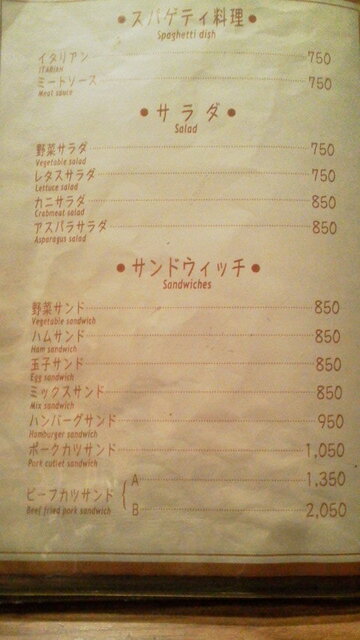 ●スパゲティ料理●
Spaghetti dish
イタリアン 750
ITARIAN
ミートソース 750
Meat sauce
●サラダ●
Salad
野菜サラダ 750
Vegetable salad
レタスサラダ 750
Lettuce salad
カニサラダ 850
Crabmeat salad
アスパラサラダ 850
Asparagus salad
●サンドウィッチ●
Sandwiches
野菜サンド 850
Vegetable sandwich
ハムサンド 850
Ham sandwich
玉子サンド 850
Egg sandwich
ミックスサンド 850
Mix sandwich
ハンバーグサンド 950
Hamburger sandwich
ポークカツサンド 1,050
Pork cutlet sandwich
ビーフカツサンド A 1,350
Beef fried pork sandwich B 2,050